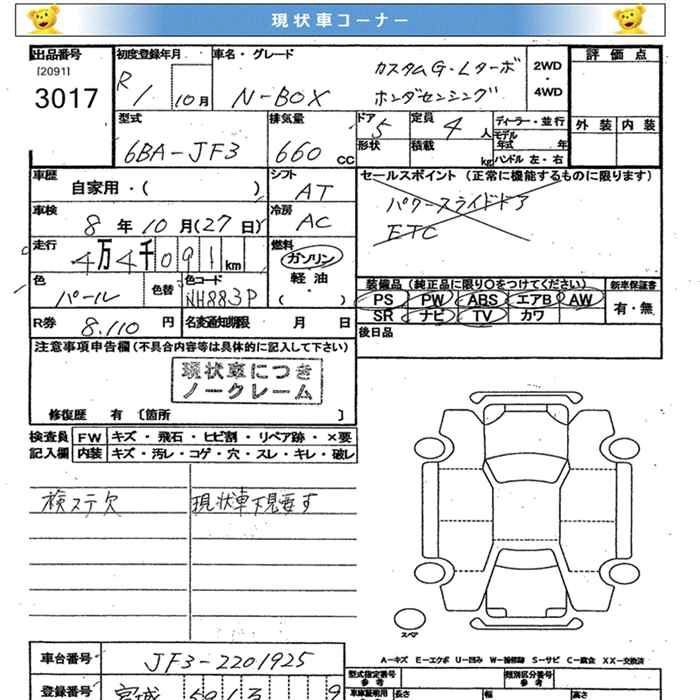 現状車コーナー
出品番号
[2091]
3017
初度登録年月
R/1 10月
車名・グレード
N-BOX
カスタムG・Lターボ
ホンダセンシング
2WD
・
4WD
評価点
外装 内装
型式
6BA-JF3
排気量
660 cc
ドア 5
定員 4 人
形状
積載 kg
ディーラー・並行
モデル年式 年
ハンドル 左・右
車歴 自家用・( )
シフト AT
車検 8年10月(27日)
冷房 AC
走行 4万4千091km
燃料 ガソリン
軽油
色 パール
色替
色コード NH883P
R券 8,110 円
名変通知期限 月 日
セールスポイント (正常に機能するものに限ります)
パワースライドドア
ETC
装備品 (純正品に限り○をつけてください)
PS PW ABS エアB AW
SR ナビ TV カワ
新車保証書
有・無
後日品
注意事項申告欄(不具合内容等は具体的に記入して下さい)
現状車につき
ノークレーム
修復歴 有 [箇所 ]
検査員 FW キズ・飛石・ヒビ割・リペア跡・×要
記入欄 内装 キズ・汚レ・コゲ・穴・スレ・キレ・破レ
検ステ欠
現状車下見要す
スペア
A-キズ E-エクボ U-凹み W-補修跡 S-サビ C-腐食 XX-交換済
車台番号 JF3-2201925
登録番号 宮城
型式指定番号 参考
類別区分番号 参考
長さ 幅 高さ